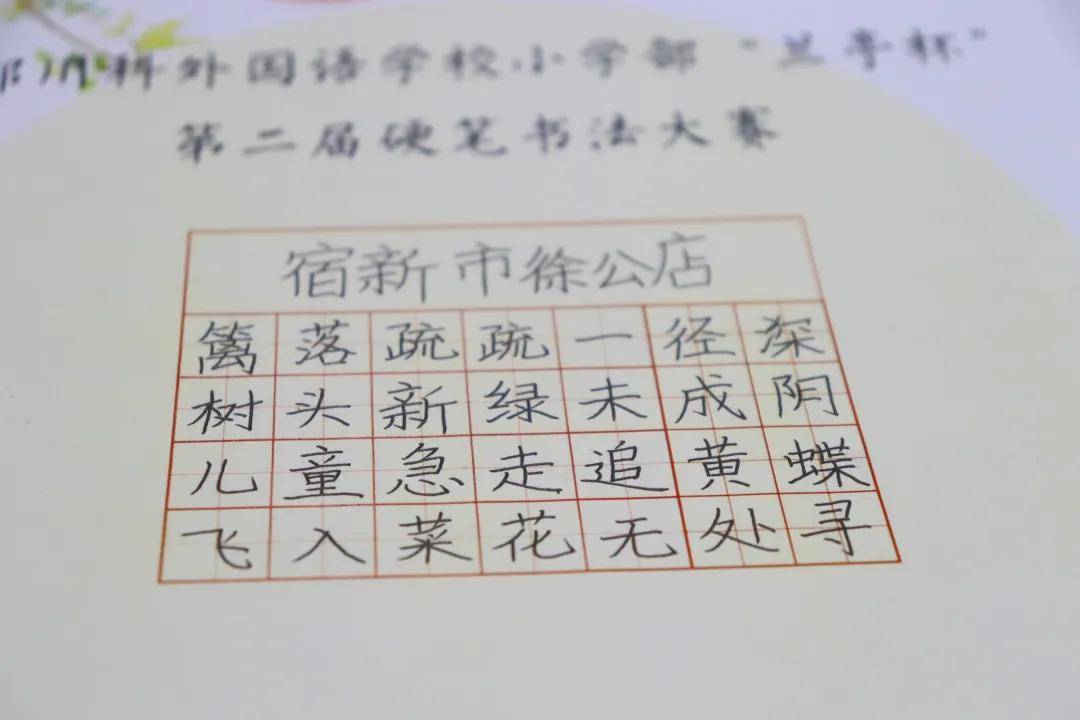 科外国语学校小学部“兰亭杯”
第二届硬笔书法大赛
宿新市徐公店
篱落疏疏一径深
树头新绿未成阴
儿童急走追黄蝶
飞入菜花无处寻